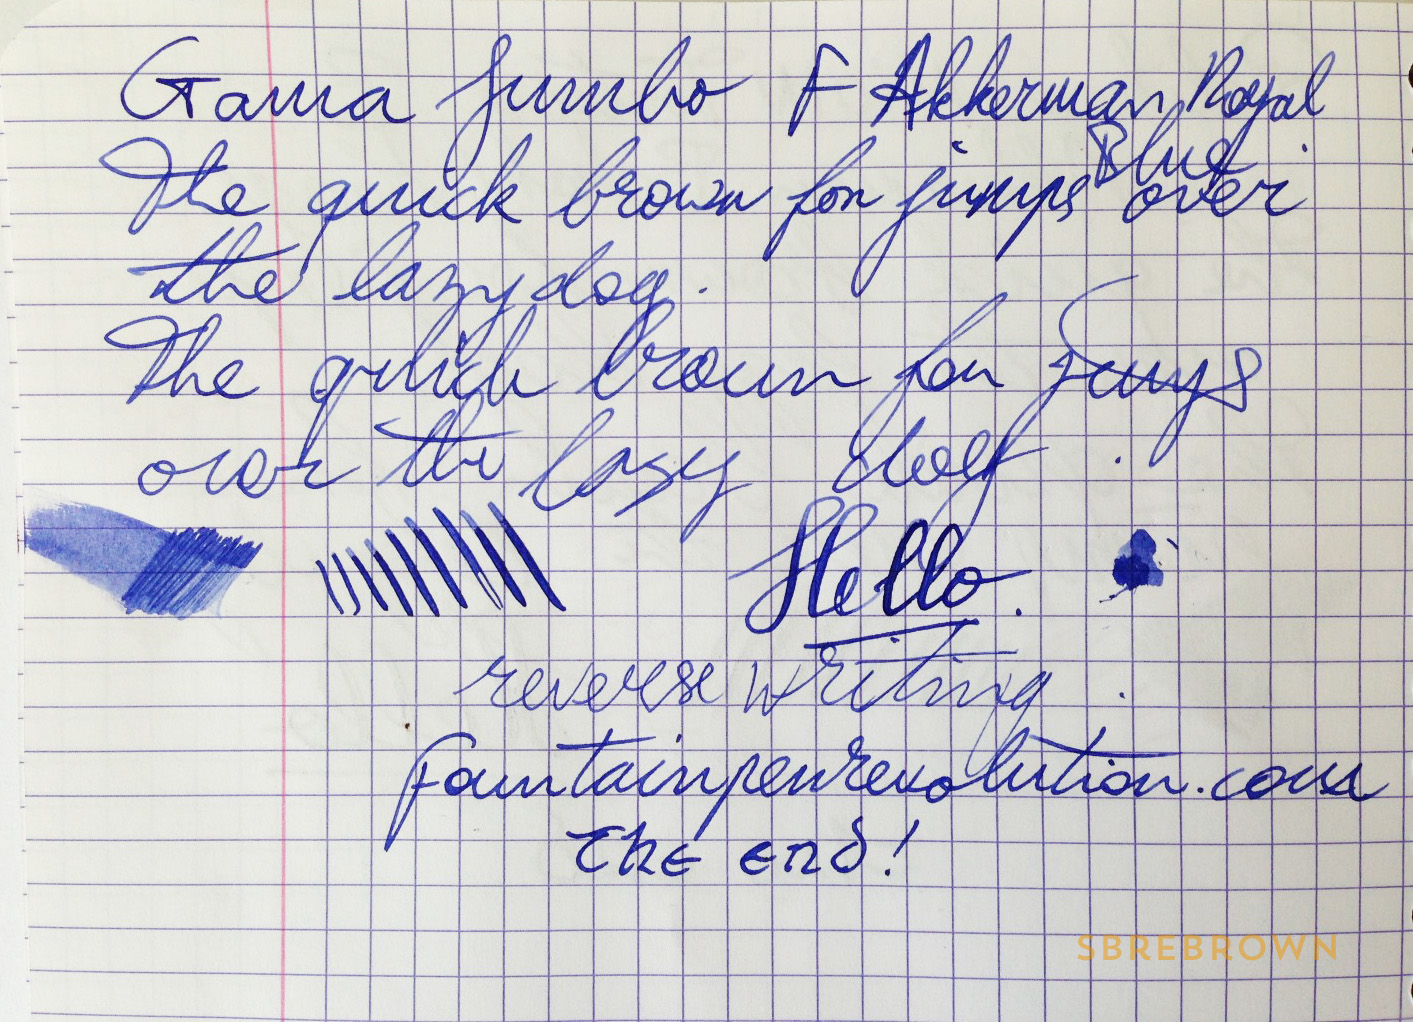 Gama Jumbo F Akkerman Royal
Blue
The quick brown fox jumps over
the lazy dog.
The quick brown fox jumps
over the lazy dog.
Hello.
reverse writing.
fountainpenrevolution.com
The end!
SBREBROWN